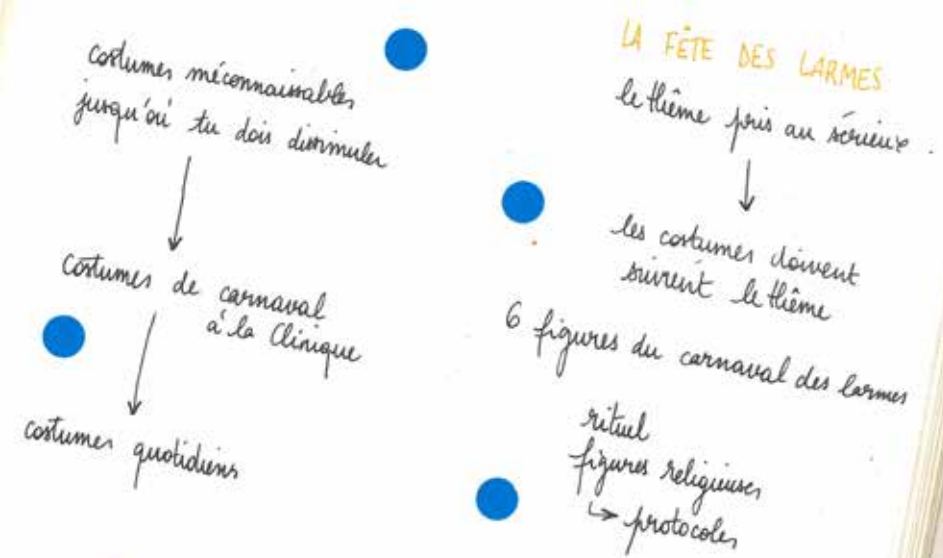 costumes méconnaissables
jusqu'où tu dois dissimuler
costumes de carnaval
à la Clinique
costumes quotidiens
LA FÊTE DES LARMES
le thème pris au sérieux.
les costumes doivent
suivent le thême
6 figures du carnaval des larmes
rituel
figures religieuses
↳ protocoles